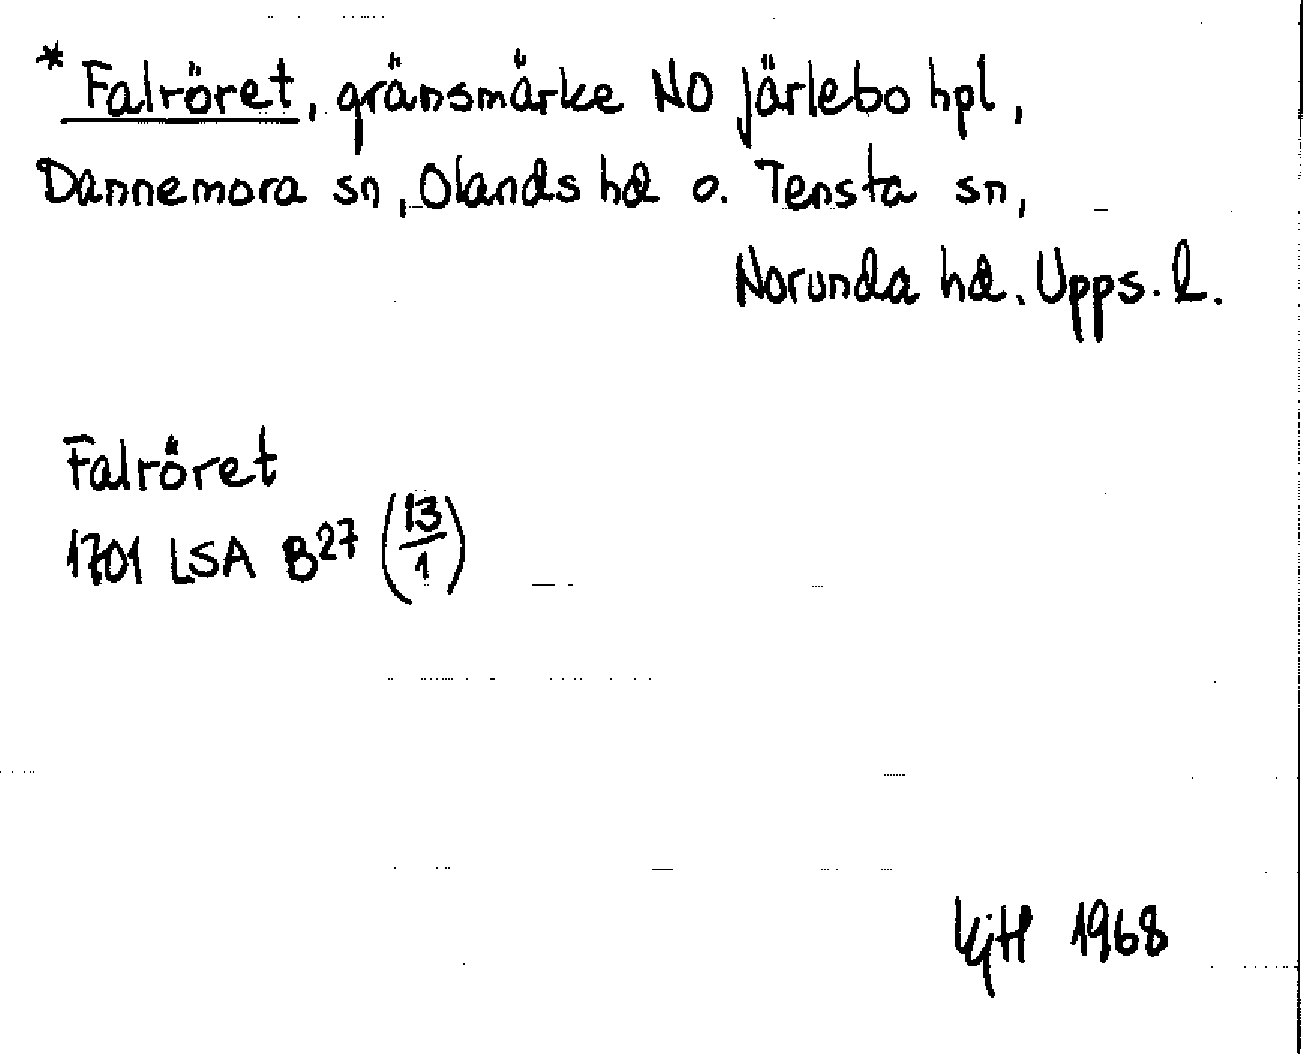 *Falröret, gränsmärke NO Järlebo hpl,
Dannemora sn, Olands hd o. Tensta sn,
Norunda hd. Upps. l.
Falröret
1701 LSA B27 (13/1)
KjH 1968